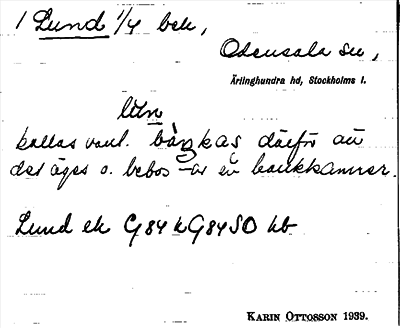 1 Lund 1/4 bek,
Odensala sn,
Ärlinghundra hd, Stockholms l.
kallas vanl. därför att
det äges o. bebos av en bankkamrer.
Lund ek G84 k G84SO kb
KARIN OTTOSSON 1939.